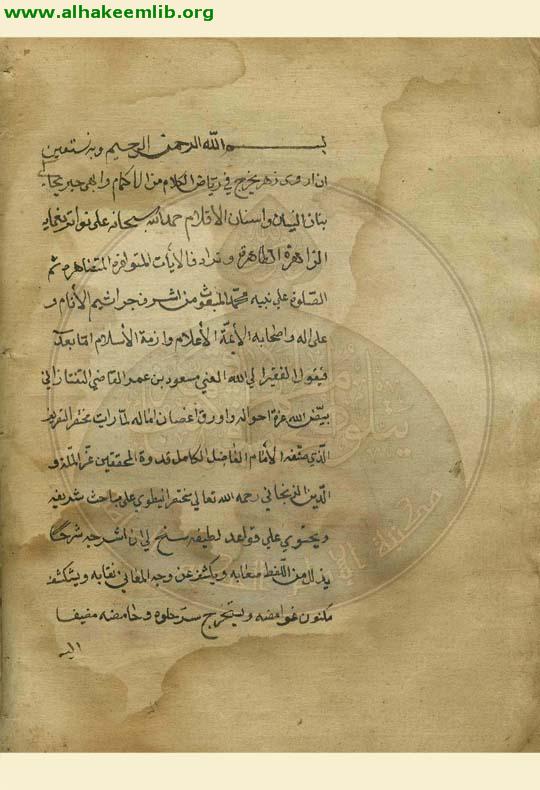 www.alhakeemlib.org
بسم الله الرحمن الرحيم وبه نستعين
ان اروى زهر يخرج في رياض الكلام من الاكمام وابهى حبر يحاك
بنان البيان واسنان الأقلام حمد الله سبحانه على تواتر نعمائه
الزاهرة الظاهرة وترادف الايآت المتوافرة المتظاهره ثم
الصلوة على نبيه محمد المبعوث من اشرف جراثيم الأنام و
على اله واصحابه الأيمّة الأعلام وازمة الأسلام امّا بعد
فيقول الفقير الي الله الغني مسعود بن عمر القاضي التفتازاني
بيّض الله غرة احواله واورق اغصان اماله لمّا رات مختصر التصريف
الّذي صنفه الأمام الفاضل الكامل قدوة المحققين عزّ الملّة و
الدّين الزنجاني رحمه الله تعالي مختصرا ينطوي على مباحث شريفه
ويحتوي علي قواعد لطيفه سنح لي ان اشرحه شرحًا
يذلل من اللّفظ صعابه ويكشف عن وجه المعاني نقابه ويستكشف
مكنون غوامضه ويستخرج سرّ حلوه وحامضه مضيفا
اليه